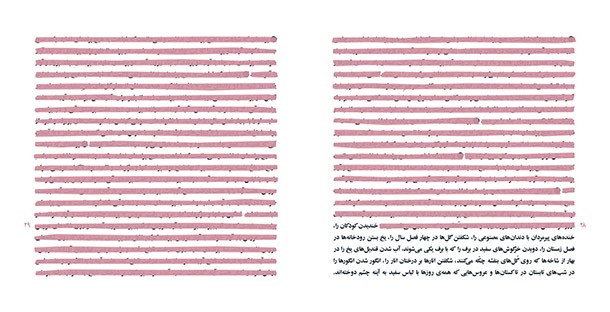 خندیدن کودکان را،
خنده‌های پیرمردان با دندان‌های مصنوعی را، شکفتن گل‌ها در چهار فصل سال را، یخ بستن رودخانه‌ها در
فصل زمستان را، دویدن خرگوش‌های سفید در برف را که با برف یکی می‌شوند، آب شدن قندیل‌های یخ را در
بهار از شاخه‌ها که روی گل‌های بنفشه چکّه می‌کنند، شکفتن انارها بر درختان انار را، انگور شدن انگورها را
در شب‌های تابستان در تاکستان‌ها و عروس‌هایی که همه‌ی روزها با لباس سفید به آینه چشم دوخته‌اند.
۲۸
۲۹